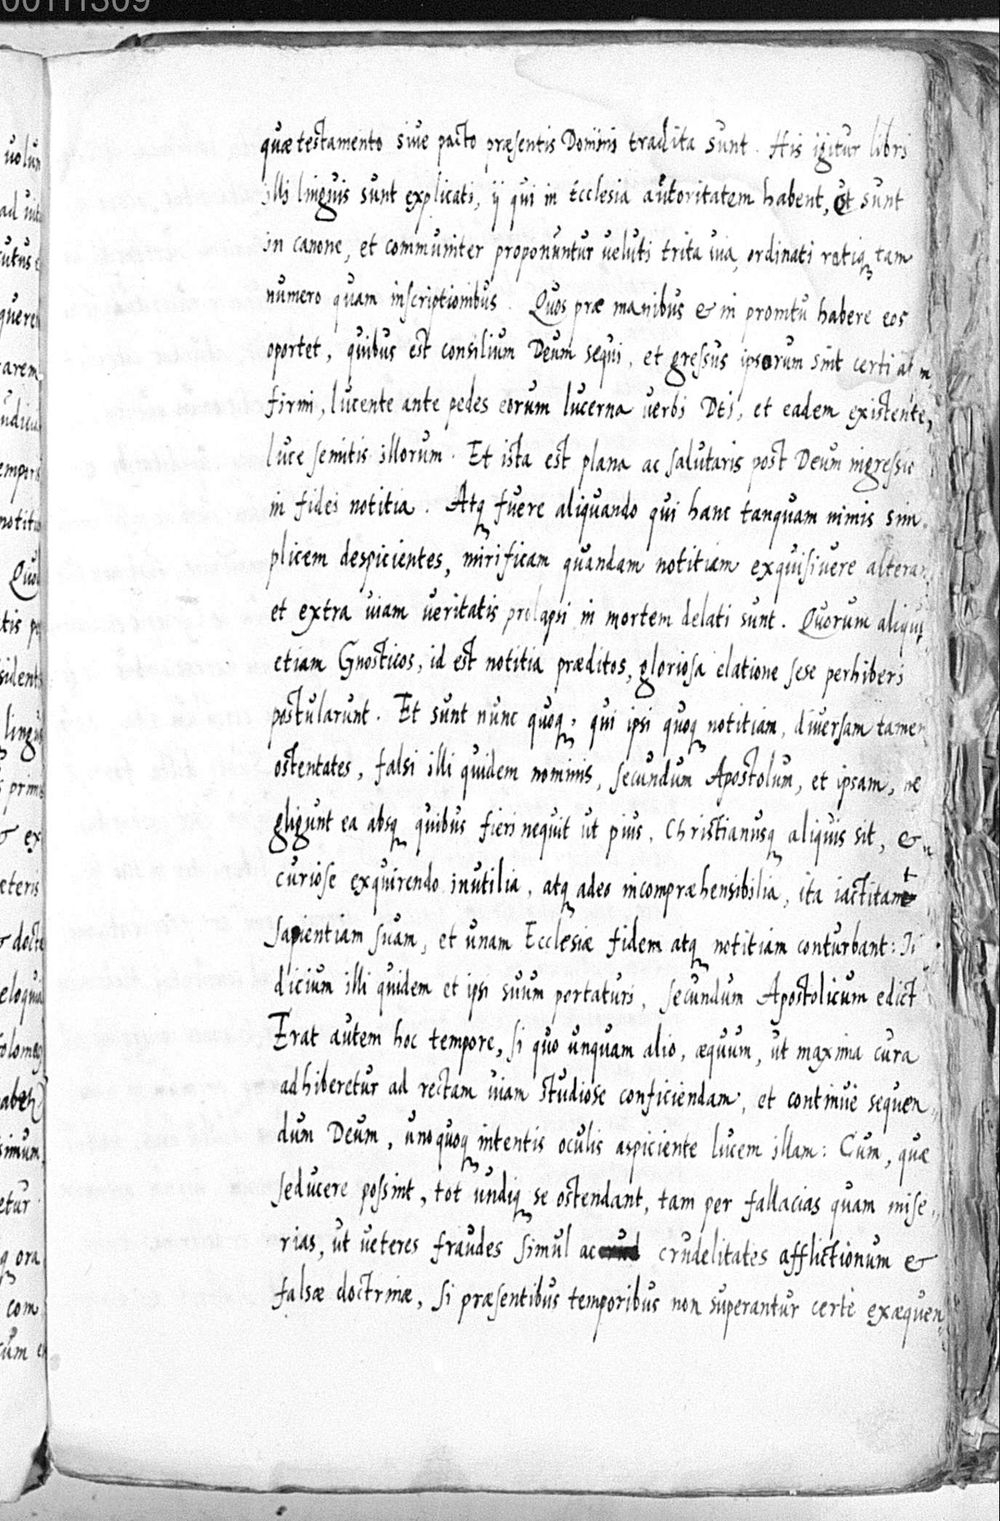 00111309
quæ testamento siue pacto præsentis Domini tradita sunt. His igitur libri
illi linguis sunt explicati, ij qui in Ecclesia autoritatem habent, et sunt
in canone, et communiter proponuntur veluti trita via, ordinati ratiōq tam
numero quam inscriptionibus. Quos præ manibus & in promtu habere eos
oportet, quibus est consilium Deum sequi, et gressus ipsorum sint certi at
firmi, lucente ante pedes eorum lucerna verbi Dei, et eadem existente,
luce semitis illorum. Et ista est plana ac salutaris post Deum ingressio
in fidei notitia. Atq fuere aliquando qui hanc tanquam nimis sim-
plicem despicientes, mirificam quandam notitiam exquisiuere alteram
et extra uiam ueritatis prolapsi in mortem delati sunt. Quorum aliqui
etiam Gnosticos, id est notitia præditos, gloriosa elatione sese perhiberi
postularunt. Et sunt nunc quoq, qui ipsi quoq notitiam, diuersam tamen
ostentates, falsi illi quidem nominis, secundum Apostolum, et ipsam, ne
gligunt ea absq quibus fieri nequit ut pius, Christianusq aliquis sit, &
curiose exquirendo inutilia, atq adeo incompræhensibilia, ita iactitant
sapientiam suam, et unam Ecclesiæ fidem atq notitiam conturbant: Iu
dicium illi quidem et ipsi suum portaturi, secundum Apostolicum edict
Erat autem hoc tempore, si quo unquam alio, æquum, ut maxima cura
adhiberetur ad rectam uiam studiose conficiendam, et continuè sequen
dum Deum, unoquoq intentis oculis aspiciente lucem illam: Cum, quæ
seducere possint, tot undiq se ostendant, tam per fallacias quam mise-
rias, ut ueteres fraudes simul ac crudelitates afflictionum &
falsæ doctrinæ, si præsentibus temporibus non superantur certè exæquen